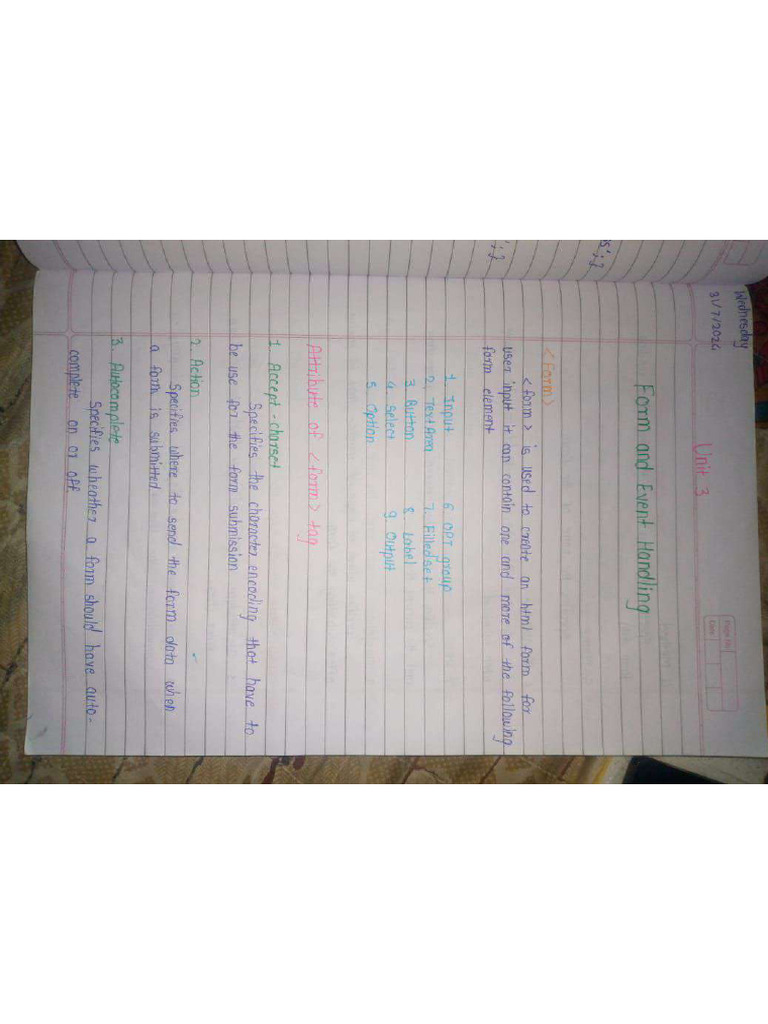 Wednesday
31/7/2024
Page No.
Date
Unit 3
Form and Event Handling
<Form>
<form> is used to create an html form for
user input it can contain one and more of the following
form element
1. Input
2. TextArea
3. Button
4. select
5. Option
6. OPT group
7. Filledset
8. Label
9. Output
Attribute of <form> tag
1. Accept-charset
Specifies the character encoding that have to
be use for the form submission
2. Action
Specifies where to send the form data when
a form is submitted
3. Autocomplete
Specifies wheather a form should have auto-
complete on or off